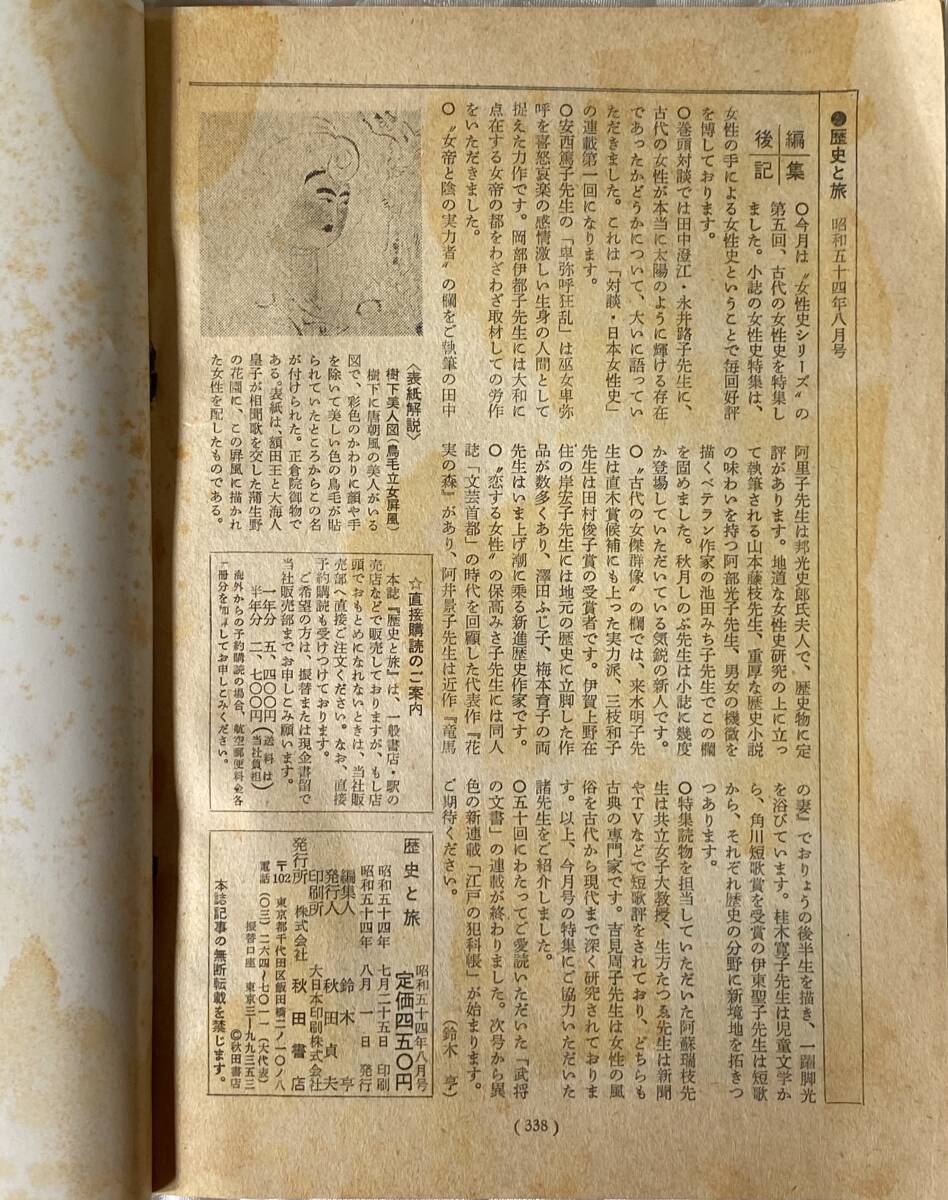 歴史と旅 昭和五十四年八月号
編集
後記
○今月は〝女性史シリーズ〟の
第五回、古代の女性史を特集し
ました。小誌の女性史特集は、
女性の手による女性史ということで毎回好評
を博しております。
○巻頭対談では田中澄江・永井路子先生に、
古代の女性が本当に太陽のように輝ける存在
であったかどうかについて、大いに語ってい
ただきました。これは「対談・日本女性史」
の連載第一回になります。
○安西篤子先生の「卑弥呼狂乱」は巫女卑弥
呼を喜怒哀楽の感情激しい生身の人間として
捉えた力作です。岡部伊都子先生には大和に
点在する女帝の都をわざわざ取材しての労作
をいただきました。
○〝女帝と陰の実力者〟の欄をご執筆の田中
阿里子先生は邦光史郎氏夫人で、歴史物に定
評があります。地道な女性史研究の上に立っ
て執筆される山本藤枝先生、重厚な歴史小説
の味わいを持つ阿部光子先生、男女の機微を
描くベテラン作家の池田みち子先生でこの欄
を固めました。秋月しのぶ先生は小誌に幾度
か登場していただいている気鋭の新人です。
○〝古代の女傑群像〟の欄では、来水明子先
生は直木賞候補にも上った実力派、三枝和子
先生は田村俊子賞の受賞者です。伊賀上野在
住の岸宏子先生には地元の歴史に立脚した作
品が数多くあり、澤田ふじ子、梅本育子の両
先生はいま上げ潮に乗る新進歴史作家です。
○〝恋する女性〟の保高みさ子先生には同人
誌「文芸首都」の時代を回顧した代表作『花
実の森』があり、阿井景子先生は近作『竜馬
の妻』でおりょうの後半生を描き、一躍脚光
を浴びています。桂木寛子先生は児童文学か
ら、角川短歌賞を受賞の伊東聖子先生は短歌
から、それぞれ歴史の分野に新境地を拓きつ
つあります。
○特集読物を担当していただいた阿蘇瑞枝先
生は共立女子大教授、生方たつゑ先生は新聞
やTVなどで短歌評をされており、どちらも
古典の専門家です。吉見周子先生は女性の風
俗を古代から現代まで深く研究されておりま
す。以上、今月号の特集にご協力いただいた
諸先生をご紹介しました。
○五十回にわたってご愛読いただいた「武将
の文書」の連載が終わりました。次号から異
色の新連載「江戸の犯科帳」が始まります。
ご期待ください。
(鈴木 亨)
〈表紙解説〉
樹下美人図(鳥毛立女屏風)
樹下に唐朝風の美人がいる
図で、彩色のかわりに顔や手
を除いて美しい色の鳥毛が貼
られていたところからこの名
が付けられた。正倉院御物で
ある。表紙は、額田王と大海人
皇子が相聞歌を交した蒲生野
の花園に、この屏風に描かれ
た女性を配したものである。
☆直接購読のご案内
本誌『歴史と旅』は、一般書店・駅の
売店などで販売しておりますが、もし店
頭でおもとめになれないときは、当社販
売部へ直接ご注文ください。なお、直接
予約購読も受けつけております。
ご希望の方は、振替または現金書留で
当社販売部までお申しこみ願います。
一年分 五、四〇〇円(送料は
半年分 二、七〇〇円(当社負担)
海外からの予約購読の場合、航空郵便料金各
一冊分を加算してお申しこみください。
歴史と旅
昭和五十四年八月号
定価四五〇円
昭和五十四年 七月二十五日 印刷
昭和五十四年 八月一日 発行
編集人 鈴木亨
発行人 秋田貞夫
印刷所 大日本印刷株式会社
発行所 株式会社 秋田書店
〒102 東京都千代田区飯田橋二ノ一〇ノ八
電話 (〇三)二六四―七〇一一(大代表)
振替口座 東京三―九九三五三
©秋田書店
本誌記事の無断転載を禁じます。
(338)